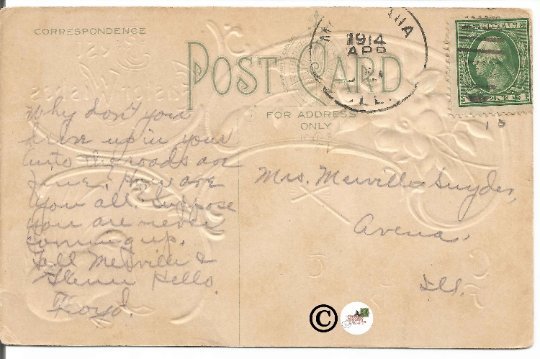 CORRESPONDENCE
POST CARD
FOR ADDRESS
ONLY
1914
APR
ILL.
Why don't you
drive up in your
auto the roads are
fine. How are
you all. Suppose
you are never
coming up.
Tell Melville &
Glenn Hello.
Floyd.
Mrs. Melville Snyder,
Avena,
Ill.
15
©